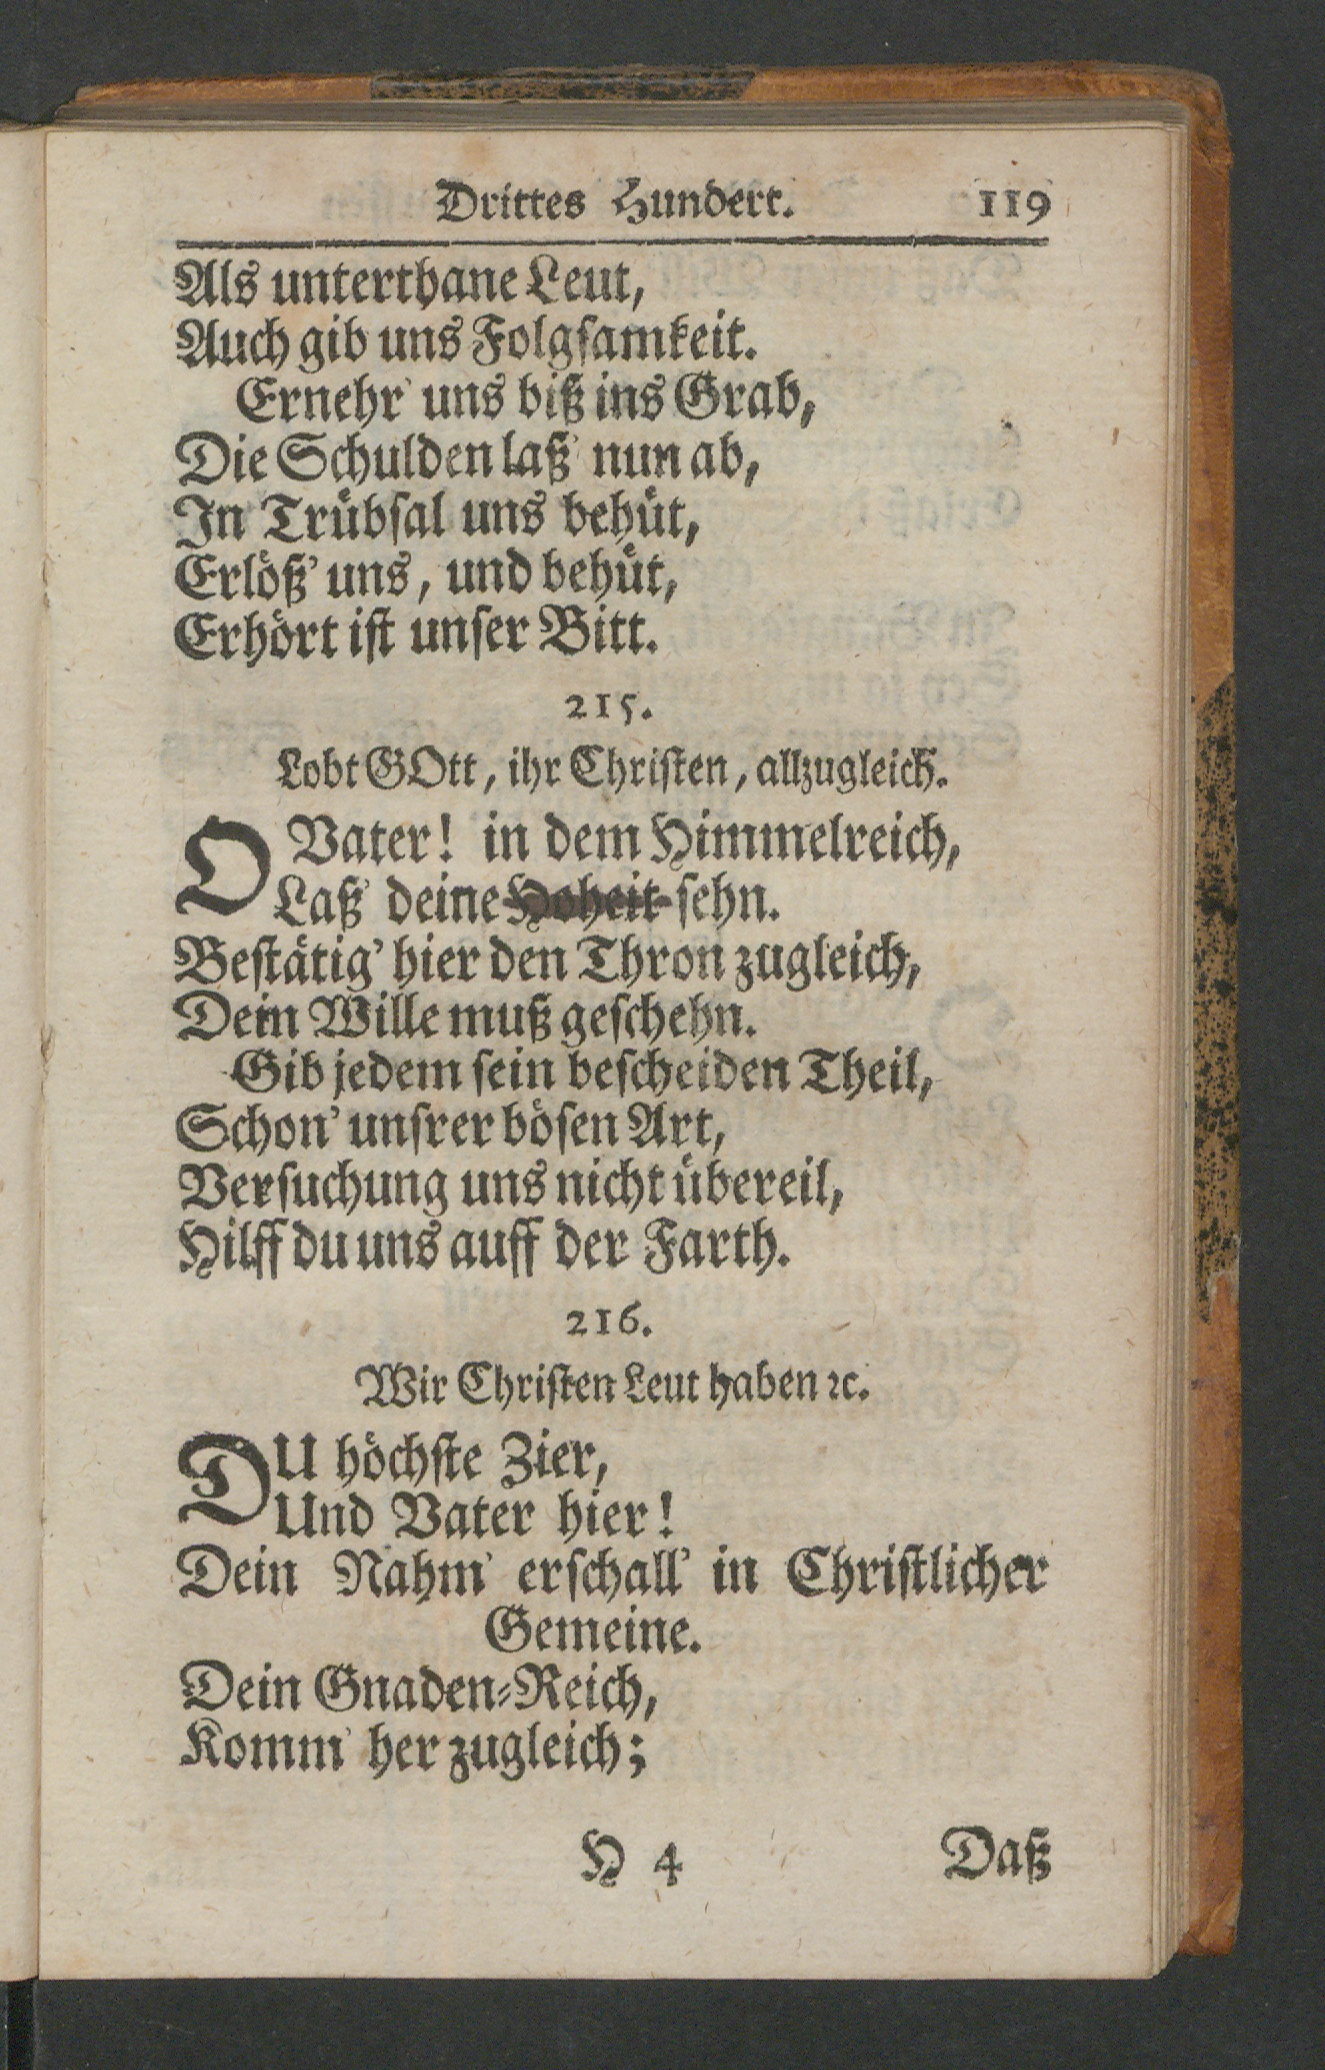 Drittes Hundert. 119
Als unterthane Leut,
Auch gib uns Folgsamkeit.
Ernehr' uns biß ins Grab,
Die Schulden laß' nun ab,
In Trübsal uns behüt,
Erlöß' uns, und behüt,
Erhört ist unser Bitt.
215.
Lobt GOtt, ihr Christen, allzugleich.
O Vater! in dem Himmelreich,
Laß' deine Hoheit sehn.
Bestätig' hier den Thron zugleich,
Dein Wille muß geschehn.
Gib jedem sein bescheiden Theil,
Schon' unsrer bösen Art,
Versuchung uns nicht übereil,
Hilff du uns auff der Farth.
216.
Wir Christen Leut haben ꝛc.
DU höchste Zier,
Und Vater hier!
Dein Nahm' erschall' in Christlicher
Gemeine.
Dein Gnaden-Reich,
Komm' her zugleich;
H 4 Daß